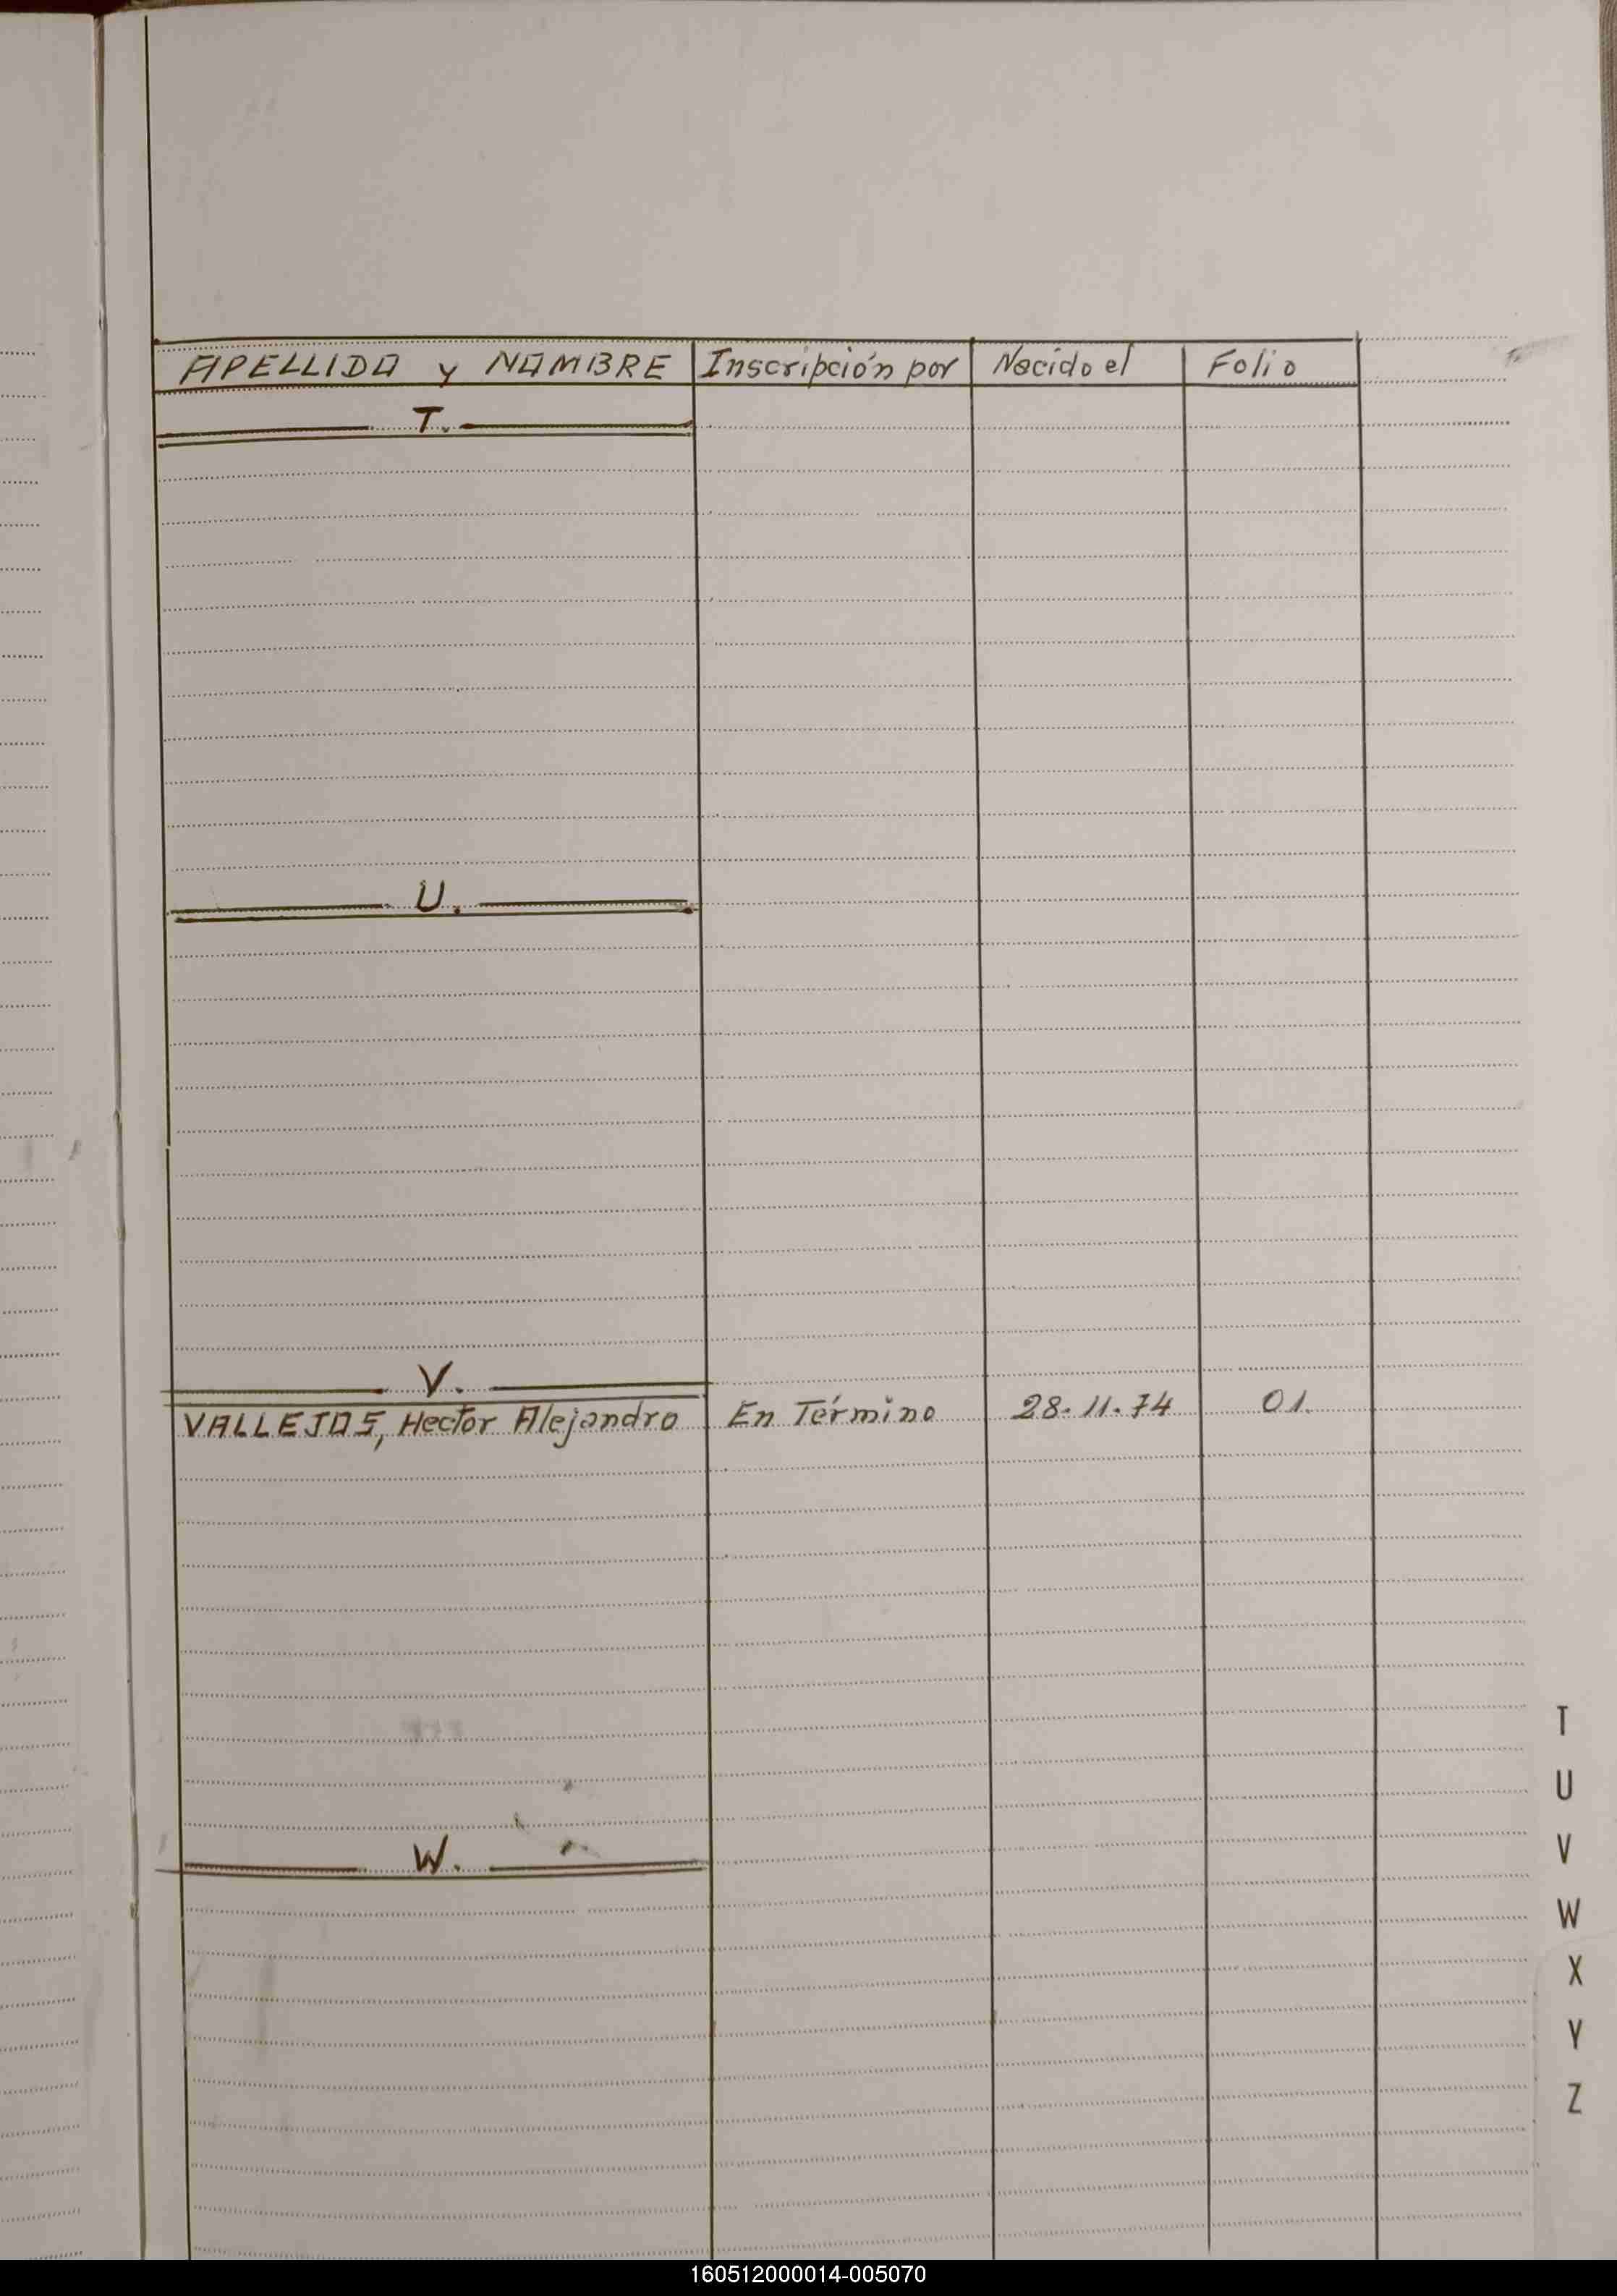 APELLIDO y NOMBRE Inscripción por Nacido el Folio
T.
U.
V.
VALLEJOS, Hector Alejandro En Término 28.11.74 01.
W.
T
U
V
W
X
Y
Z
160512000014-005070